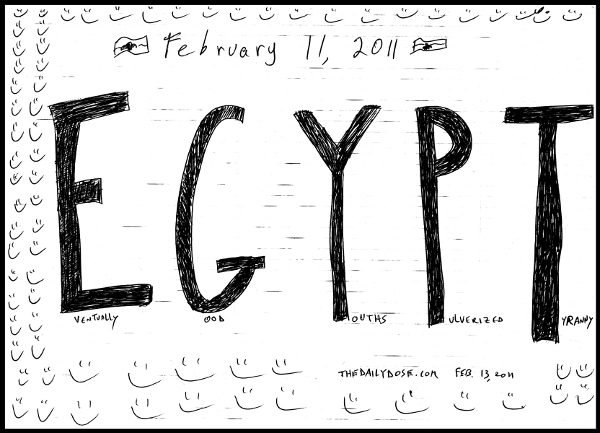 February 11, 2011
EGYPT
VENTUALLY OOD OUTHS ULVERIZED YRANNY
THEDAILYDOSE.COM FEB. 13, 2011